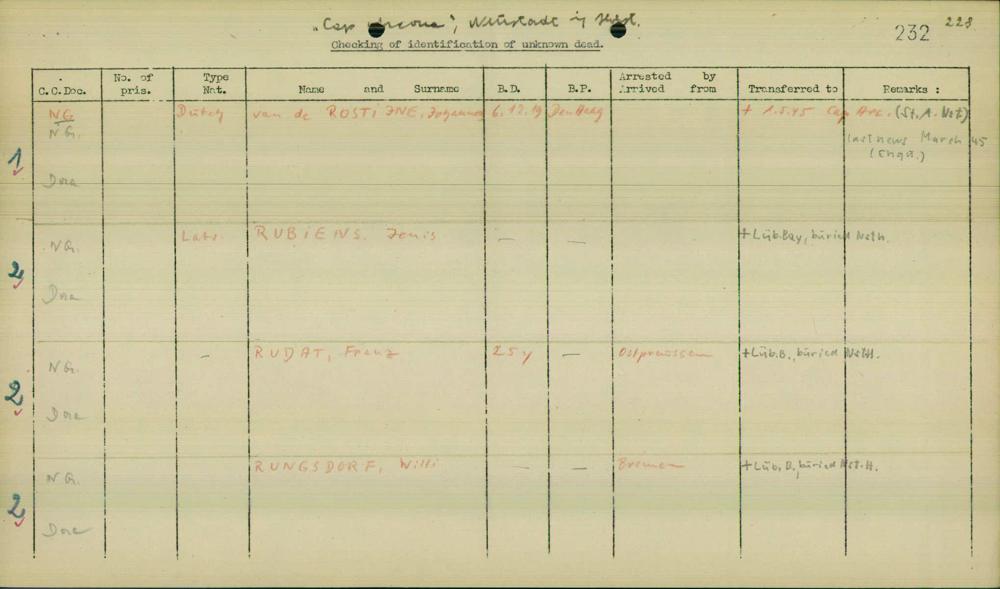 „Cap Arcona“, Neustadt i/ Holst.
232 228
Checking of identification of unknown dead.
C.C.Doc. No. of pris. Type Nat. Name and Surname B.D. B.P. Arrested by Arrived from Transferred to Remarks :
1 NG Dutch van de ROSTIJNE, Johannes 6.12.19 Den Haag + 1.5.45 Cap Arc. (St. A. Nst)
NG. last news March 45
Dora
2 NG. Latv. RUBIENS. Jenis — — + Lüb.Bay, buried Neth.
Dora
2 NG. — RUDAT, Franz 25 y — Ostpreussen + Lüb.B., buried
Dora
2 NG. RUNGSDORF, Willi — — Bremen + Lüb. B, buried
Dora